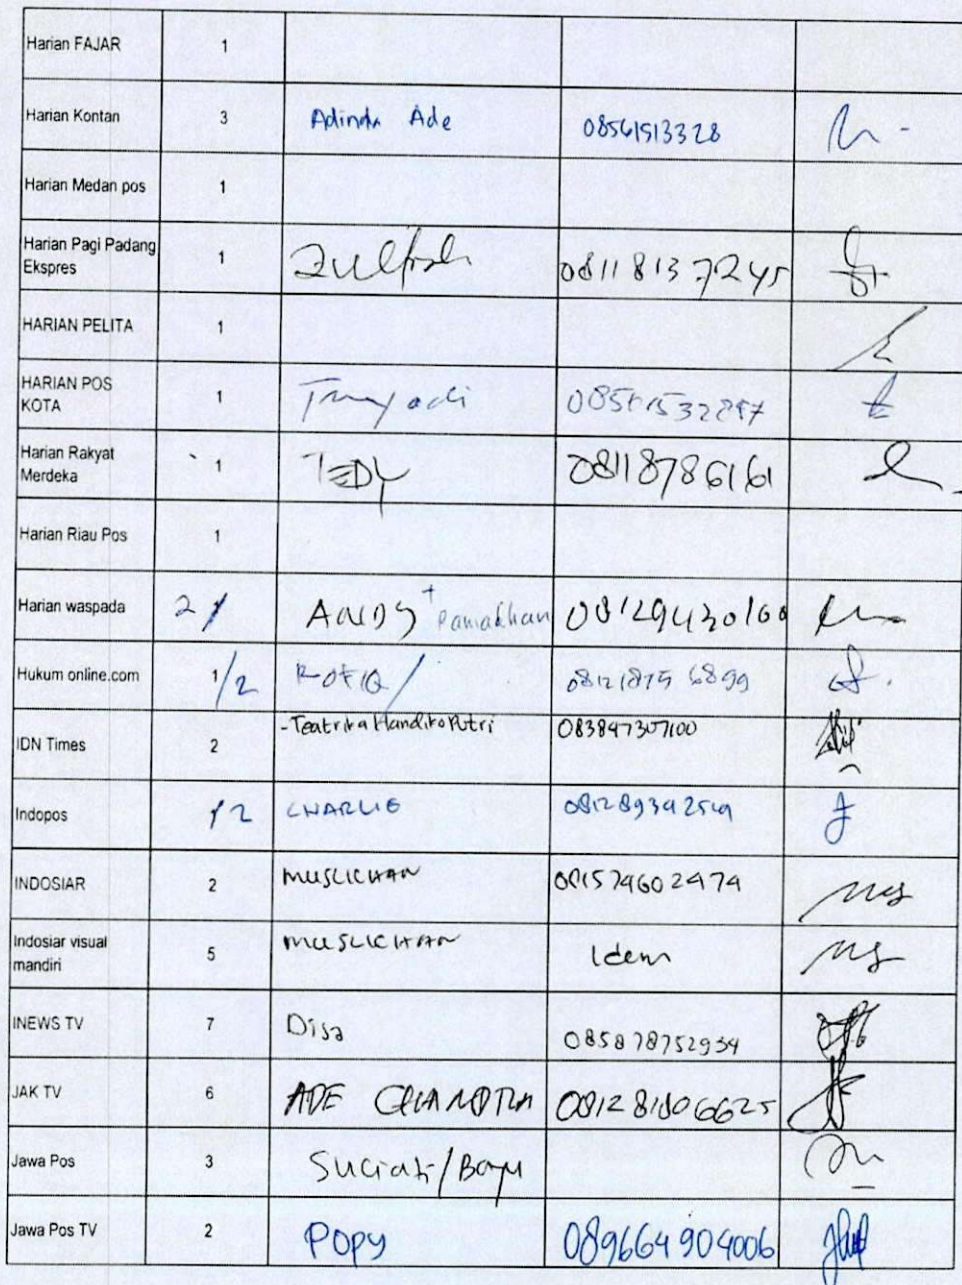 Harian FAJAR 1
Harian Kontan 3 Adinda Ade 08561513328
Harian Medan pos 1
Harian Pagi Padang Ekspres 1 08118137245
HARIAN PELITA 1
HARIAN POS KOTA 1
Harian Rakyat Merdeka 1 TEDY 08118786161
Harian Riau Pos 1
Harian waspada 2 1 ANDY + Ramadhan 08129430160
Hukum online.com 1/2 ROFIQ
IDN Times 2 - Teatrika Handiko Putri 083897307100
Indopos 1 2 CHARLIE
INDOSIAR 2 MUSLICHAN 081574602474
Indosiar visual mandiri 5 MUSLICHAN Idem
INEWS TV 7 Disa 085878752934
JAK TV 6 ADE CHANDRA 081281806625
Jawa Pos 3 Suciati/Bayu
Jawa Pos TV 2 Popy 089664904006